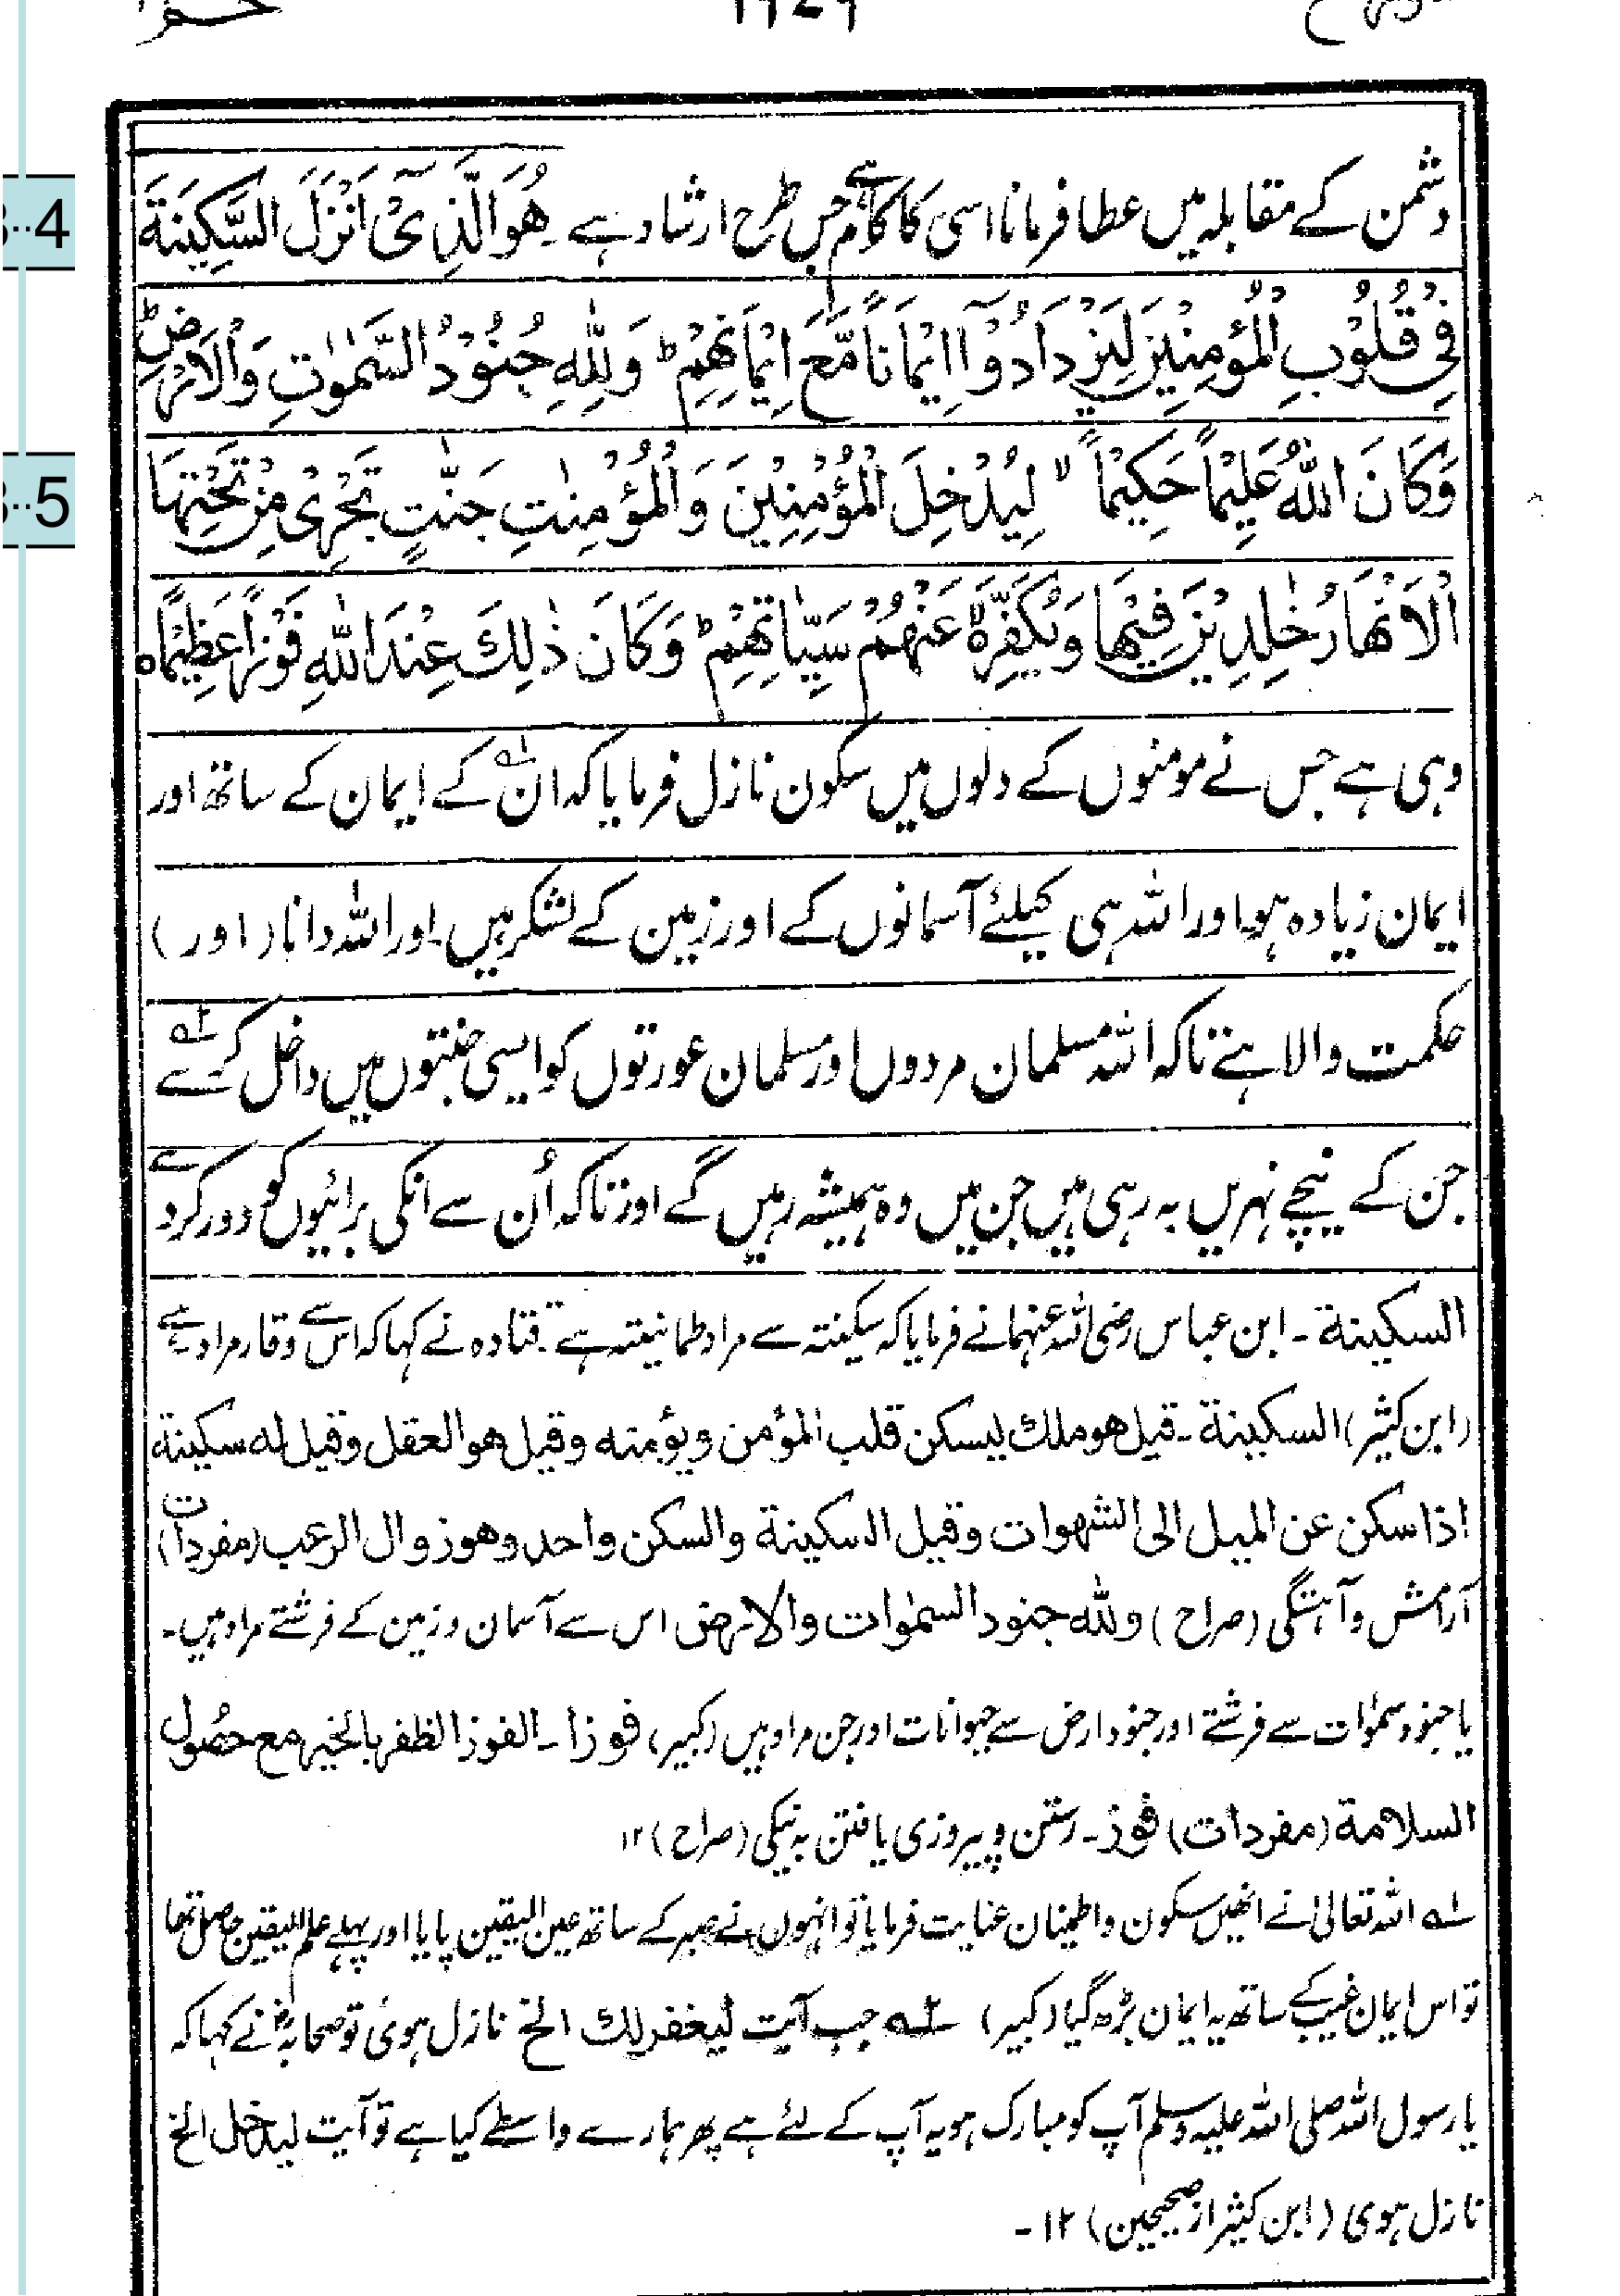 دشمن کے مقابلہ میں عطا فرمانا اسی کا کام ہے جس طرح ارشاد ہے۔ هُوَ الَّذِیْۤ اَنْزَلَ السَّكِیْنَةَ
4
فِیْ قُلُوْبِ الْمُؤْمِنِیْنَ لِیَزْدَادُوْۤا اِیْمَانًا مَّعَ اِیْمَانِهِمْ ؕ وَلِلّٰهِ جُنُوْدُ السَّمٰوٰتِ وَالْاَرْضِ ؕ
وَكَانَ اللّٰهُ عَلِیْمًا حَكِیْمًا ۙ لِیُدْخِلَ الْمُؤْمِنِیْنَ وَالْمُؤْمِنٰتِ جَنّٰتٍ تَجْرِیْ مِنْ تَحْتِهَا
5
الْاَنْهَارُ خٰلِدِیْنَ فِیْهَا وَیُكَفِّرَ عَنْهُمْ سَیِّاٰتِهِمْ ؕ وَكَانَ ذٰلِكَ عِنْدَ اللّٰهِ فَوْزًا عَظِیْمًا ہ
وہی ہے جس نے مومنوں کے دلوں میں سکون نازل فرمایا کہ ان ۱؎ کے ایمان کے ساتھ اور
ایمان زیادہ ہو اور اللہ ہی کیلئے آسمانوں کے اور زمین کے لشکر ہیں۔ اور اللہ دانا (اور)
حکمت والا ہے تاکہ اللہ مسلمان مردوں اور مسلمان عورتوں کو ایسی جنتوں میں داخل کرے ۲؎
جن کے نیچے نہریں بہ رہی ہیں جن میں وہ ہمیشہ رہیں گے اور تاکہ اُن سے انکی برائیوں کو دور کردے
السکینة۔ ابن عباس رضی اللہ عنہما نے فرمایا کہ سکینتہ سے مراد طمانیتہ ہے۔ قتادہ نے کہا کہ اس سے وقار مراد ہے
(ابن کثیر) السکینة۔ قیل هو ملك لیسکن قلب المؤمن ویؤمنه وقیل هو العقل وقیل له سکینة
اذا سکن عن المیل الی الشهوات وقیل السکینة والسکن واحد وهو زوال الرعب (مفردات)
آرامش و آہستگی (صراح) وللّٰه جنود السمٰوات والارض اس سے آسمان و زمین کے فرشتے مراد ہیں۔
یا جنود سمٰوات سے فرشتے اور جنود ارض سے حیوانات اور جن مراد ہیں (کبیر) فوزا۔ الفوز الظفر بالخیر مع حصُول
السلامة (مفردات) فوز۔ رستن و پیروزی یافتن بہ نیکی (صراح) ۱۲
۱؎ اللہ تعالیٰ نے انھیں سکون و اطمینان عنایت فرمایا تو انہوں نے صبر کے ساتھ عین الیقین پایا اور پہلے علم الیقین حاصل تھا
تو اس ایمان غیب کے ساتھ یہ ایمان بڑھ گیا (کبیر) ۲؎ جب آیت لیغفر لك الخ نازل ہوئی تو صحابہؓ نے کہا کہ
یا رسول اللہ صلی اللہ علیہ وسلم آپ کو مبارک ہو یہ آپ کے لئے ہے پھر ہمارے واسطے کیا ہے تو آیت لیدخل الخ
نازل ہوی (ابن کثیر از صحیحین) ۱۲۔